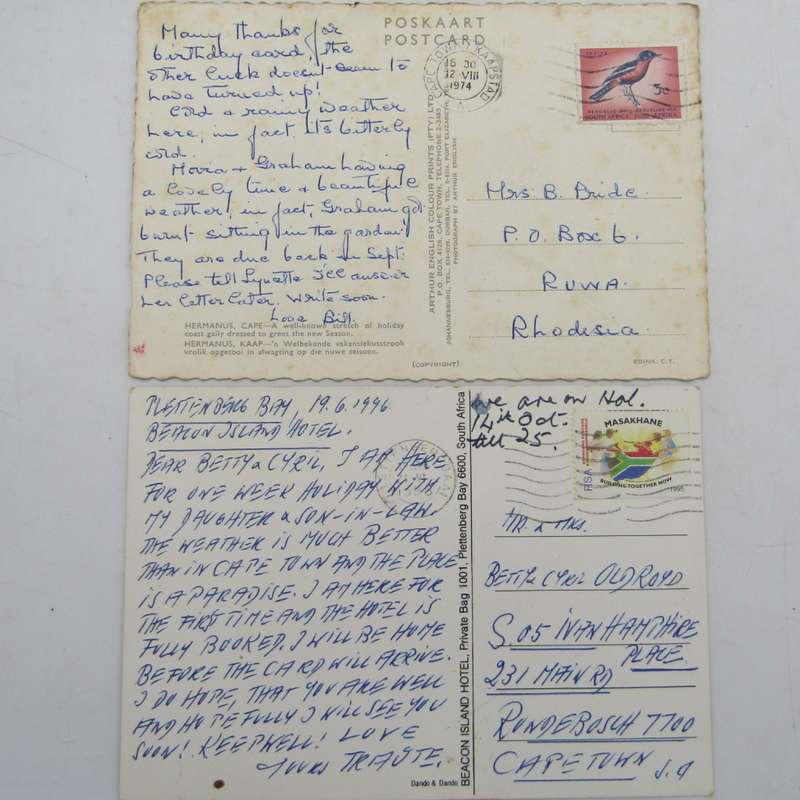 POSKAART
POSTCARD
Many thanks for
birthday card, the
other luck doesn't seem to
have turned up!
Cold & rainy weather
here, in fact, its bitterly
cold.
Moira & Graham having
a lovely time & beautiful
weather, in fact, Graham got
burnt sitting in the garden!
They are due back in Sept.
Please tell Lynette I'll answer
her letter later. Write soon.
Love Bill.
HERMANUS, CAPE—A well-known stretch of holiday
coast gaily dressed to greet the new Season.
HERMANUS, KAAP—'n Welbekende vakansiekusstrook
vrolik opgetooi in afwagting op die nuwe seisoen.
(COPYRIGHT)
ARTHUR ENGLISH COLOUR PRINTS (PTY) LTD.
P.O. BOX 4129, CAPE TOWN, TELEPHONE 2-3485
PHOTOGRAPH BY ARTHUR ENGLISH
CAPE TOWN KAAPSTAD
16 30
12 VIII
1974
5c
Mrs B. Bride.
P.O. Box 6.
RUWA.
Rhodesia.
EDINA, C.T.
PLETTENBERG BAY, 19.6.1996.
BEACON ISLAND HOTEL.
DEAR BETTY & CYRIL, I AM HERE
FOR ONE WEEK HOLIDAY WITH
MY DAUGHTER & SON-IN-LAW.
THE WEATHER IS MUCH BETTER
THAN IN CAPE TOWN AND THE PLACE
IS A PARADISE. I AM HERE FOR
THE FIRST TIME AND THE HOTEL IS
FULLY BOOKED. I WILL BE HOME
BEFORE THE CARD WILL ARRIVE.
I DO HOPE, THAT YOU ARE WELL
AND HOPEFULLY I WILL SEE YOU
SOON! KEEP WELL! LOVE
YOURS TRAUTE.
Dando & Dando
BEACON ISLAND HOTEL, Private Bag 1001, Plettenberg Bay 6600, South Africa
we are on Hol.
14th Oct.
till 25.
MASAKHANE
RSA
BUILDING TOGETHER NOW
1995
MR. & MRS.
BETTY & CYRIL OLDROYD
S.05 IVANHAMPHIRE
PLACE
231 MAIN RD
RONDEBOSCH 7700
CAPETOWN S.A